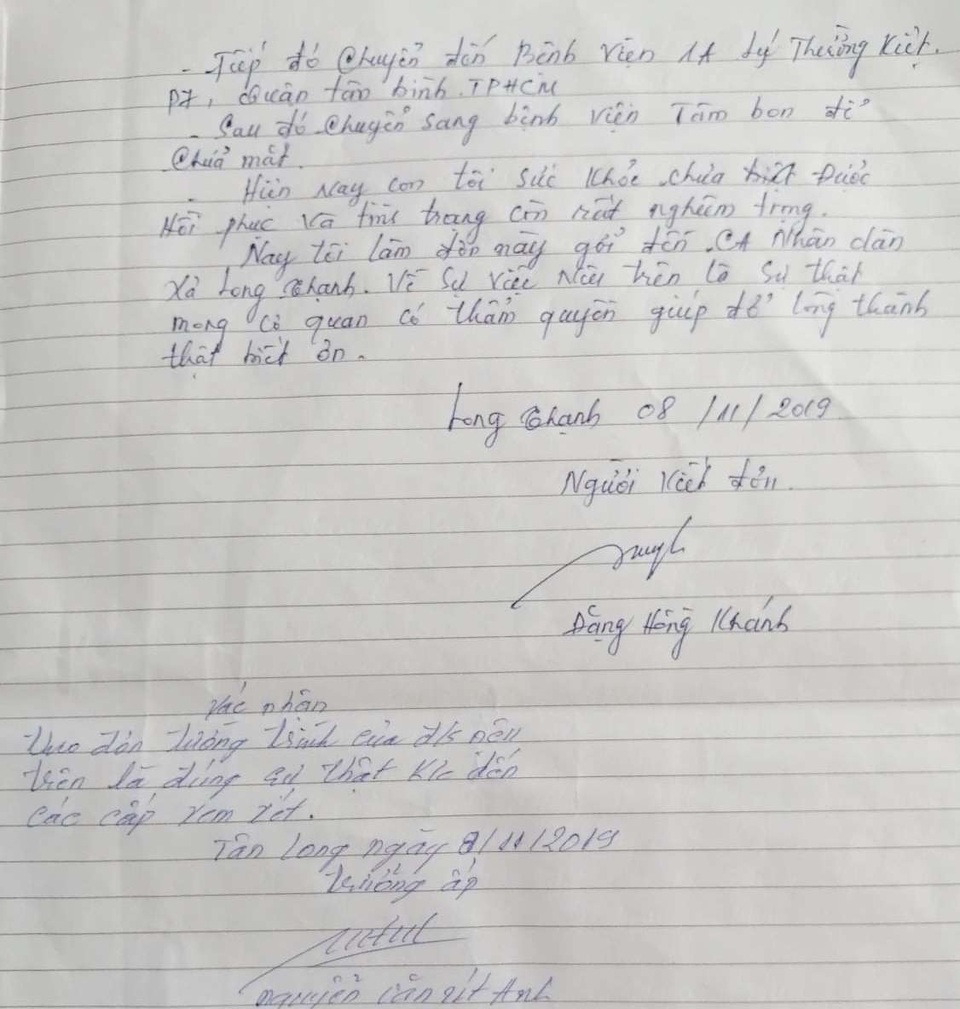 - Tiếp đó chuyển đến Bệnh viện 1A Lý Thường Kiệt.
P7, Quận tân bình. TPHCM
- Sau đó chuyển sang bệnh viện Tâm bon để
Chưả mắt.
- Hiện nay con tôi sức khỏe chưa biết Được
Hồi phục và tình trạng còn rất nghiêm trọng.
Nay tôi làm đơn này gởi đến CA Nhân dân
xả Long Thạnh. Về sự việc nêu trên là sự thật
mong cơ quan có thẩm quyền giúp đở lòng thành
thật biết ơn.
Long Thạnh 08/11/2019
Người viết đơn.
Đặng Hồng Khánh
Xác nhận
theo đơn tường trình của đ/s nêu
trên là đúng sự thật K/c đến
các cấp xem xét.
Tân Long ngày 8/11/2019
trưởng ấp
nguyễn văn Anh